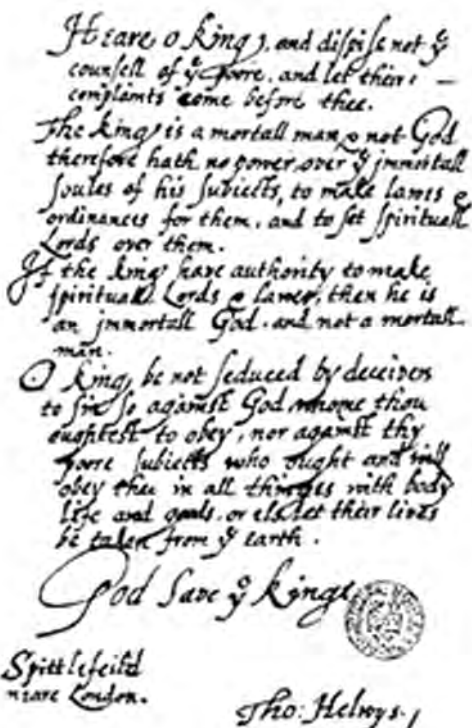 Heare o king, and dispise not yͤ
counsell of yͤ poore, and let their
complaints come before thee.
The king is a mortall man, & not God
therefore hath no power over yͤ immortall
soules of his subiects, to make lawes &
ordinances for them, and to set spirituall
Lords over them.
If the king have authority to make
spirituall Lords & lawes, then he is
an immortall God, and not a mortall
man.
O king, be not seduced by deceivers
to sin so against God whome thou
oughtest to obey, nor against thy
poore subiects who ought and will
obey thee in all thinges with body
life and goods, or els let their lives
be taken from yͤ earth.
God save yͤ king
Spittlefeild
neare London.
Tho: Helwys.